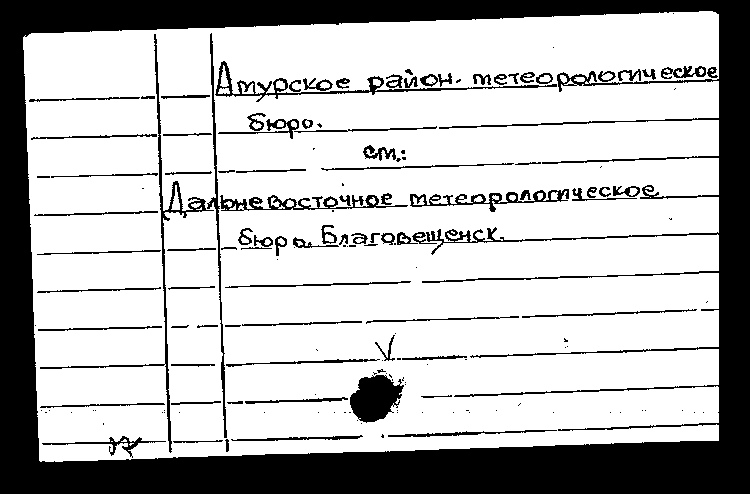 Амурское район. метеорологическое
бюро.
см.:
Дальневосточное метеорологическое
бюро. Благовещенск.